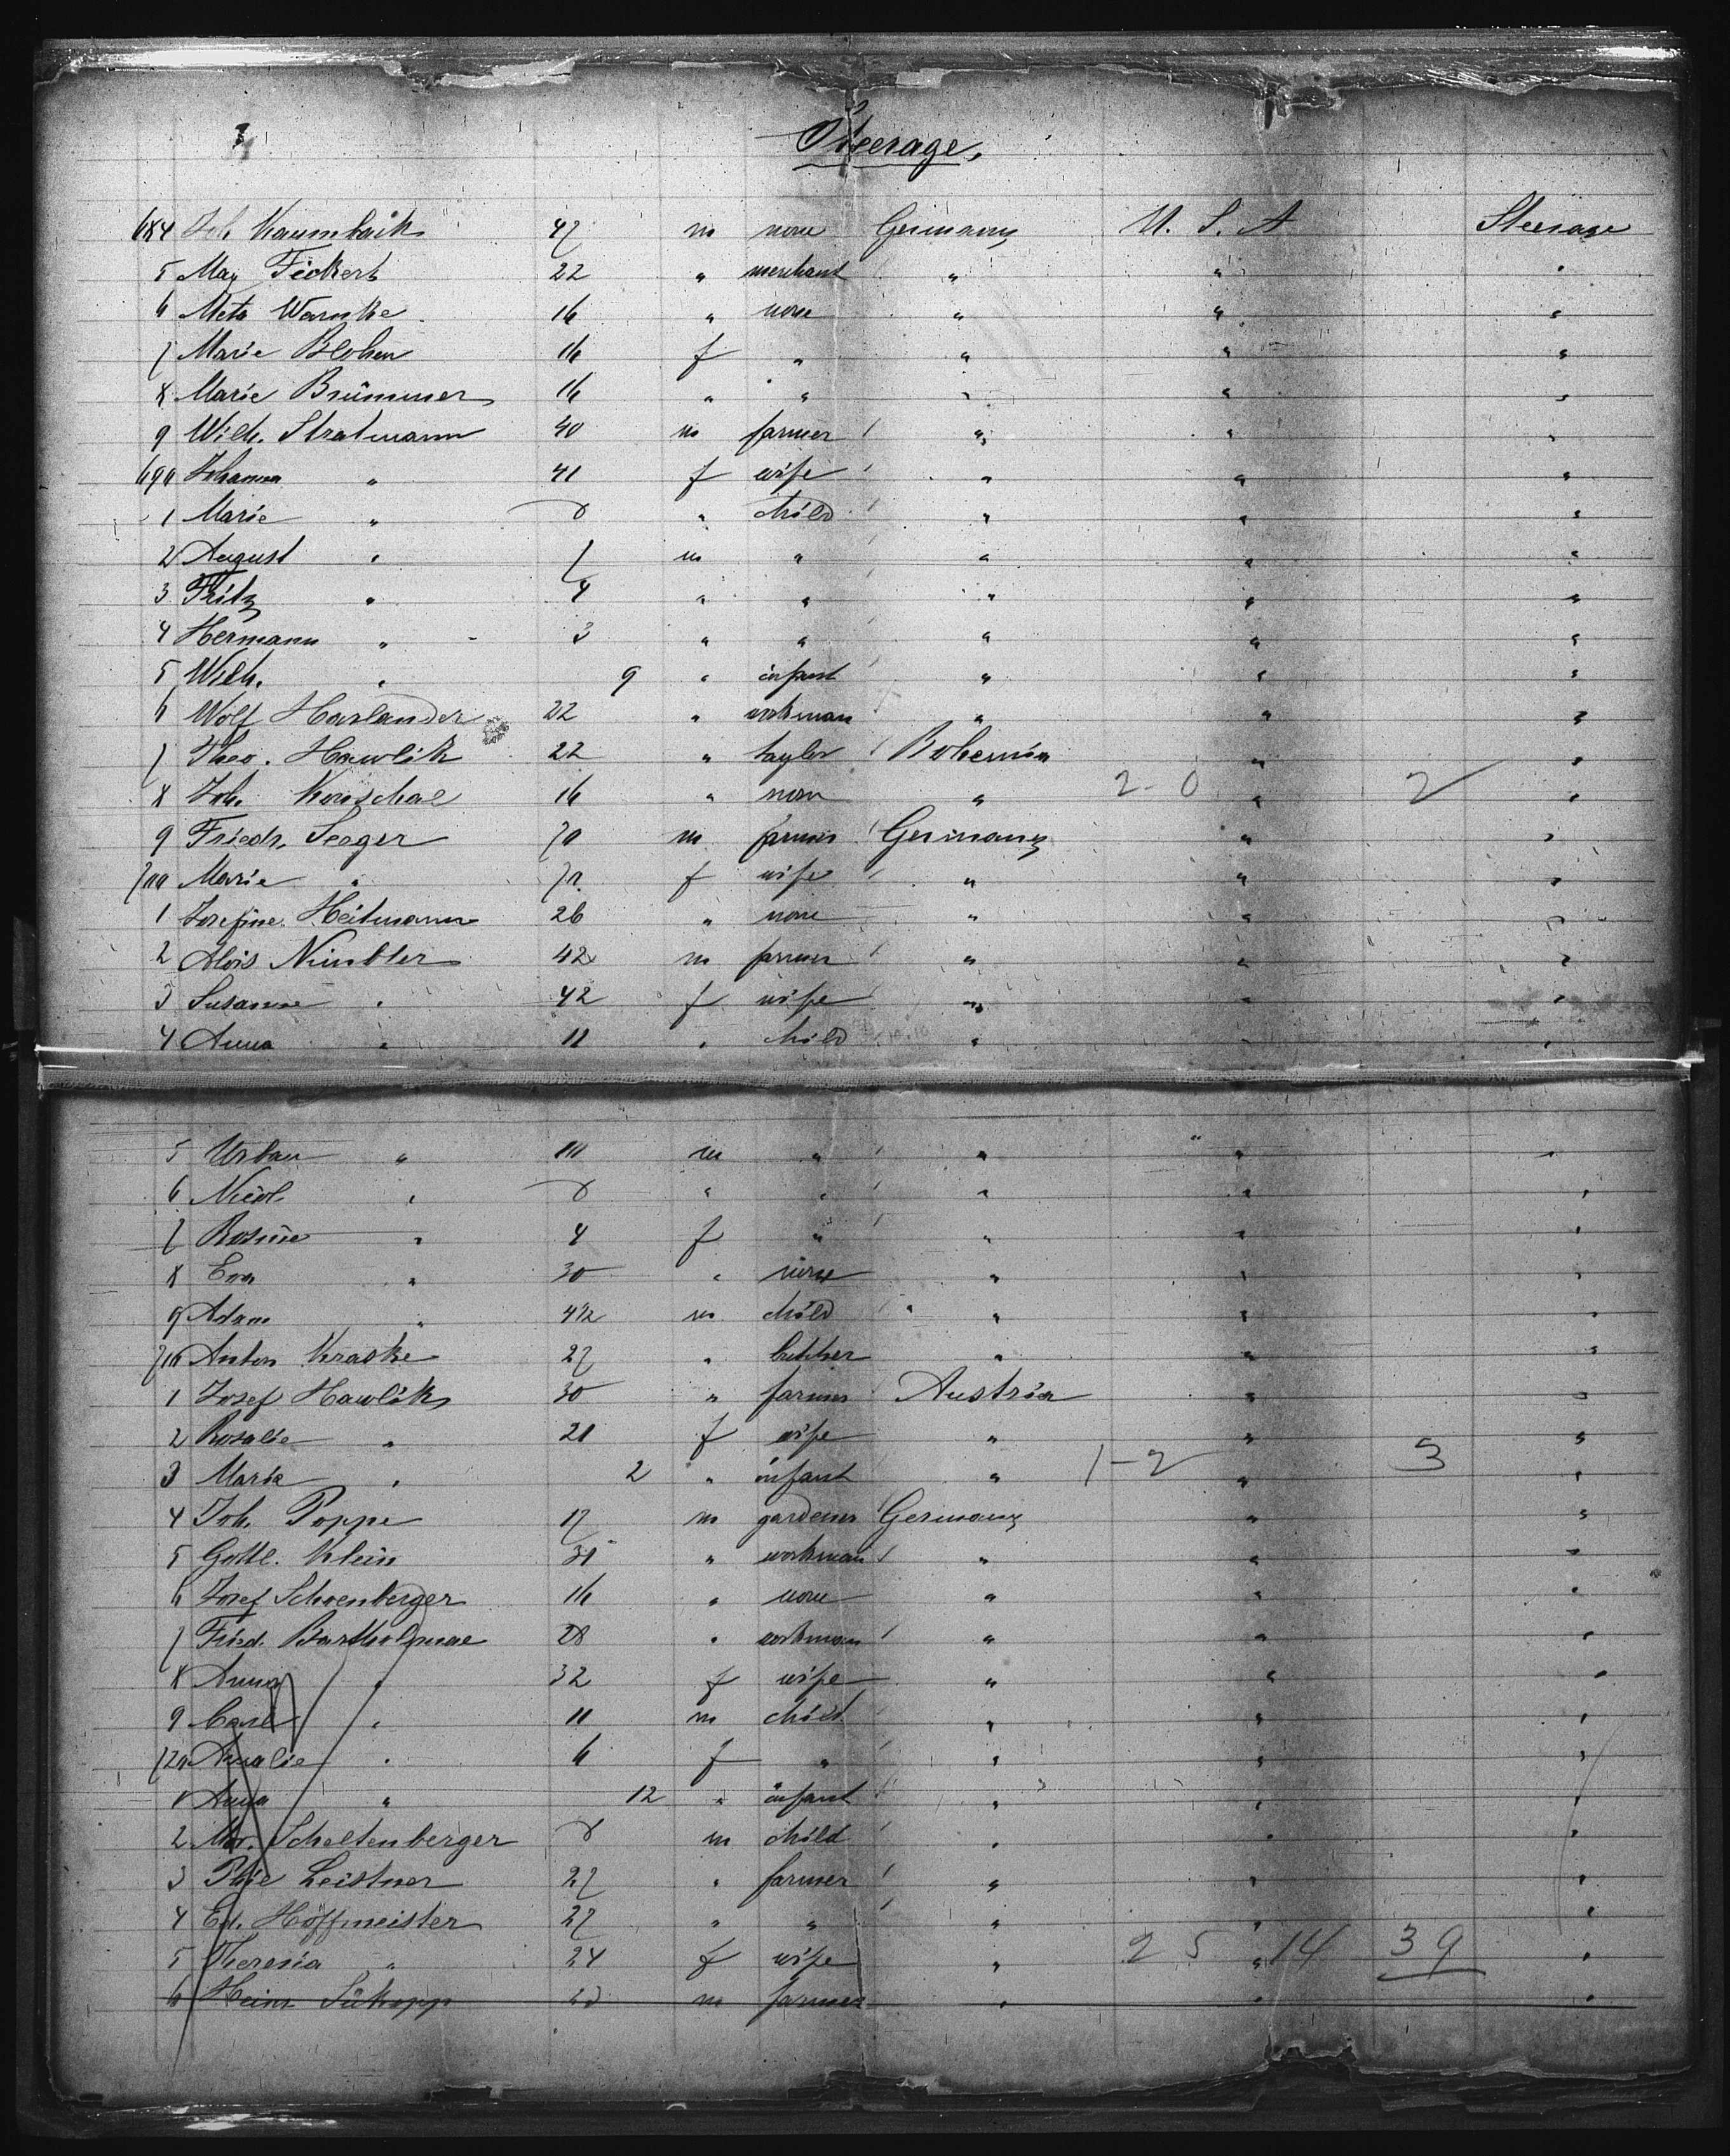 Steerage.
684 Joh. Kaumback 47 m none Germany U. S. A Steerage
5 Max Fickert 22 " merchant " " "
6 Meta Warnke 16 " none " " "
7 Marie Blohm 16 f " " " "
8 Marie Brümmer 16 " " " " "
9 Wilh. Stratmann 40 m farmer " " "
690 Johanna " 41 f wife " " "
1 Marie " 8 " child " " "
2 August " 7 m " " " "
3 Fritz " 4 " " " " "
4 Hermann " 3 " " " " "
5 Wilh. " 9 " infant " " "
6 Wolf Harlander 22 " workman " " "
7 Theo. Hawlik 22 " taylor Bohemia " "
8 Joh. 16 " none " 2-0 " 2 "
9 Friedr. Seeger 70 m farmer Germany " "
700 Marie " 70 f wife " " "
1 Josefine Heitmann 26 " none " " "
2 Alois 42 m farmer " " "
3 Susanne " 42 f wife " " "
4 Anna " 11 " child " " "
5 Urban " 10 m " " " "
6 Nicol. " 8 " " " " "
7 Rosine " 4 f " " " "
8 Eva " 30 " none " " "
9 Adam " 4½ m child " " "
710 Anton Kraske 27 " butcher " " "
1 Josef Hawlik 30 " farmer Austria " "
2 Rosalie " 21 f wife " " "
3 Maria " 2 " infant " 1-2 " 3 "
4 Joh. Poppe 17 m gardener Germany " "
5 Gottl. Klein 31 " workman " " "
6 Josef Schoenberger 16 " none " " "
7 Fried. Bartholmae 28 " workman " " "
8 Anna " 32 f wife " " "
9 Carl " 11 m child " " "
720 Amalie " 6 f " " " "
1 Anna " 12 " infant " " "
2 Scheltenberger 8 m child " " "
3 Leistner 27 " farmer " " "
4 Ed. Hoffmeister 27 " " " " "
5 Theresia " 24 f wife " 25 " 14 39 "
6 Heinr. m farmer " " "